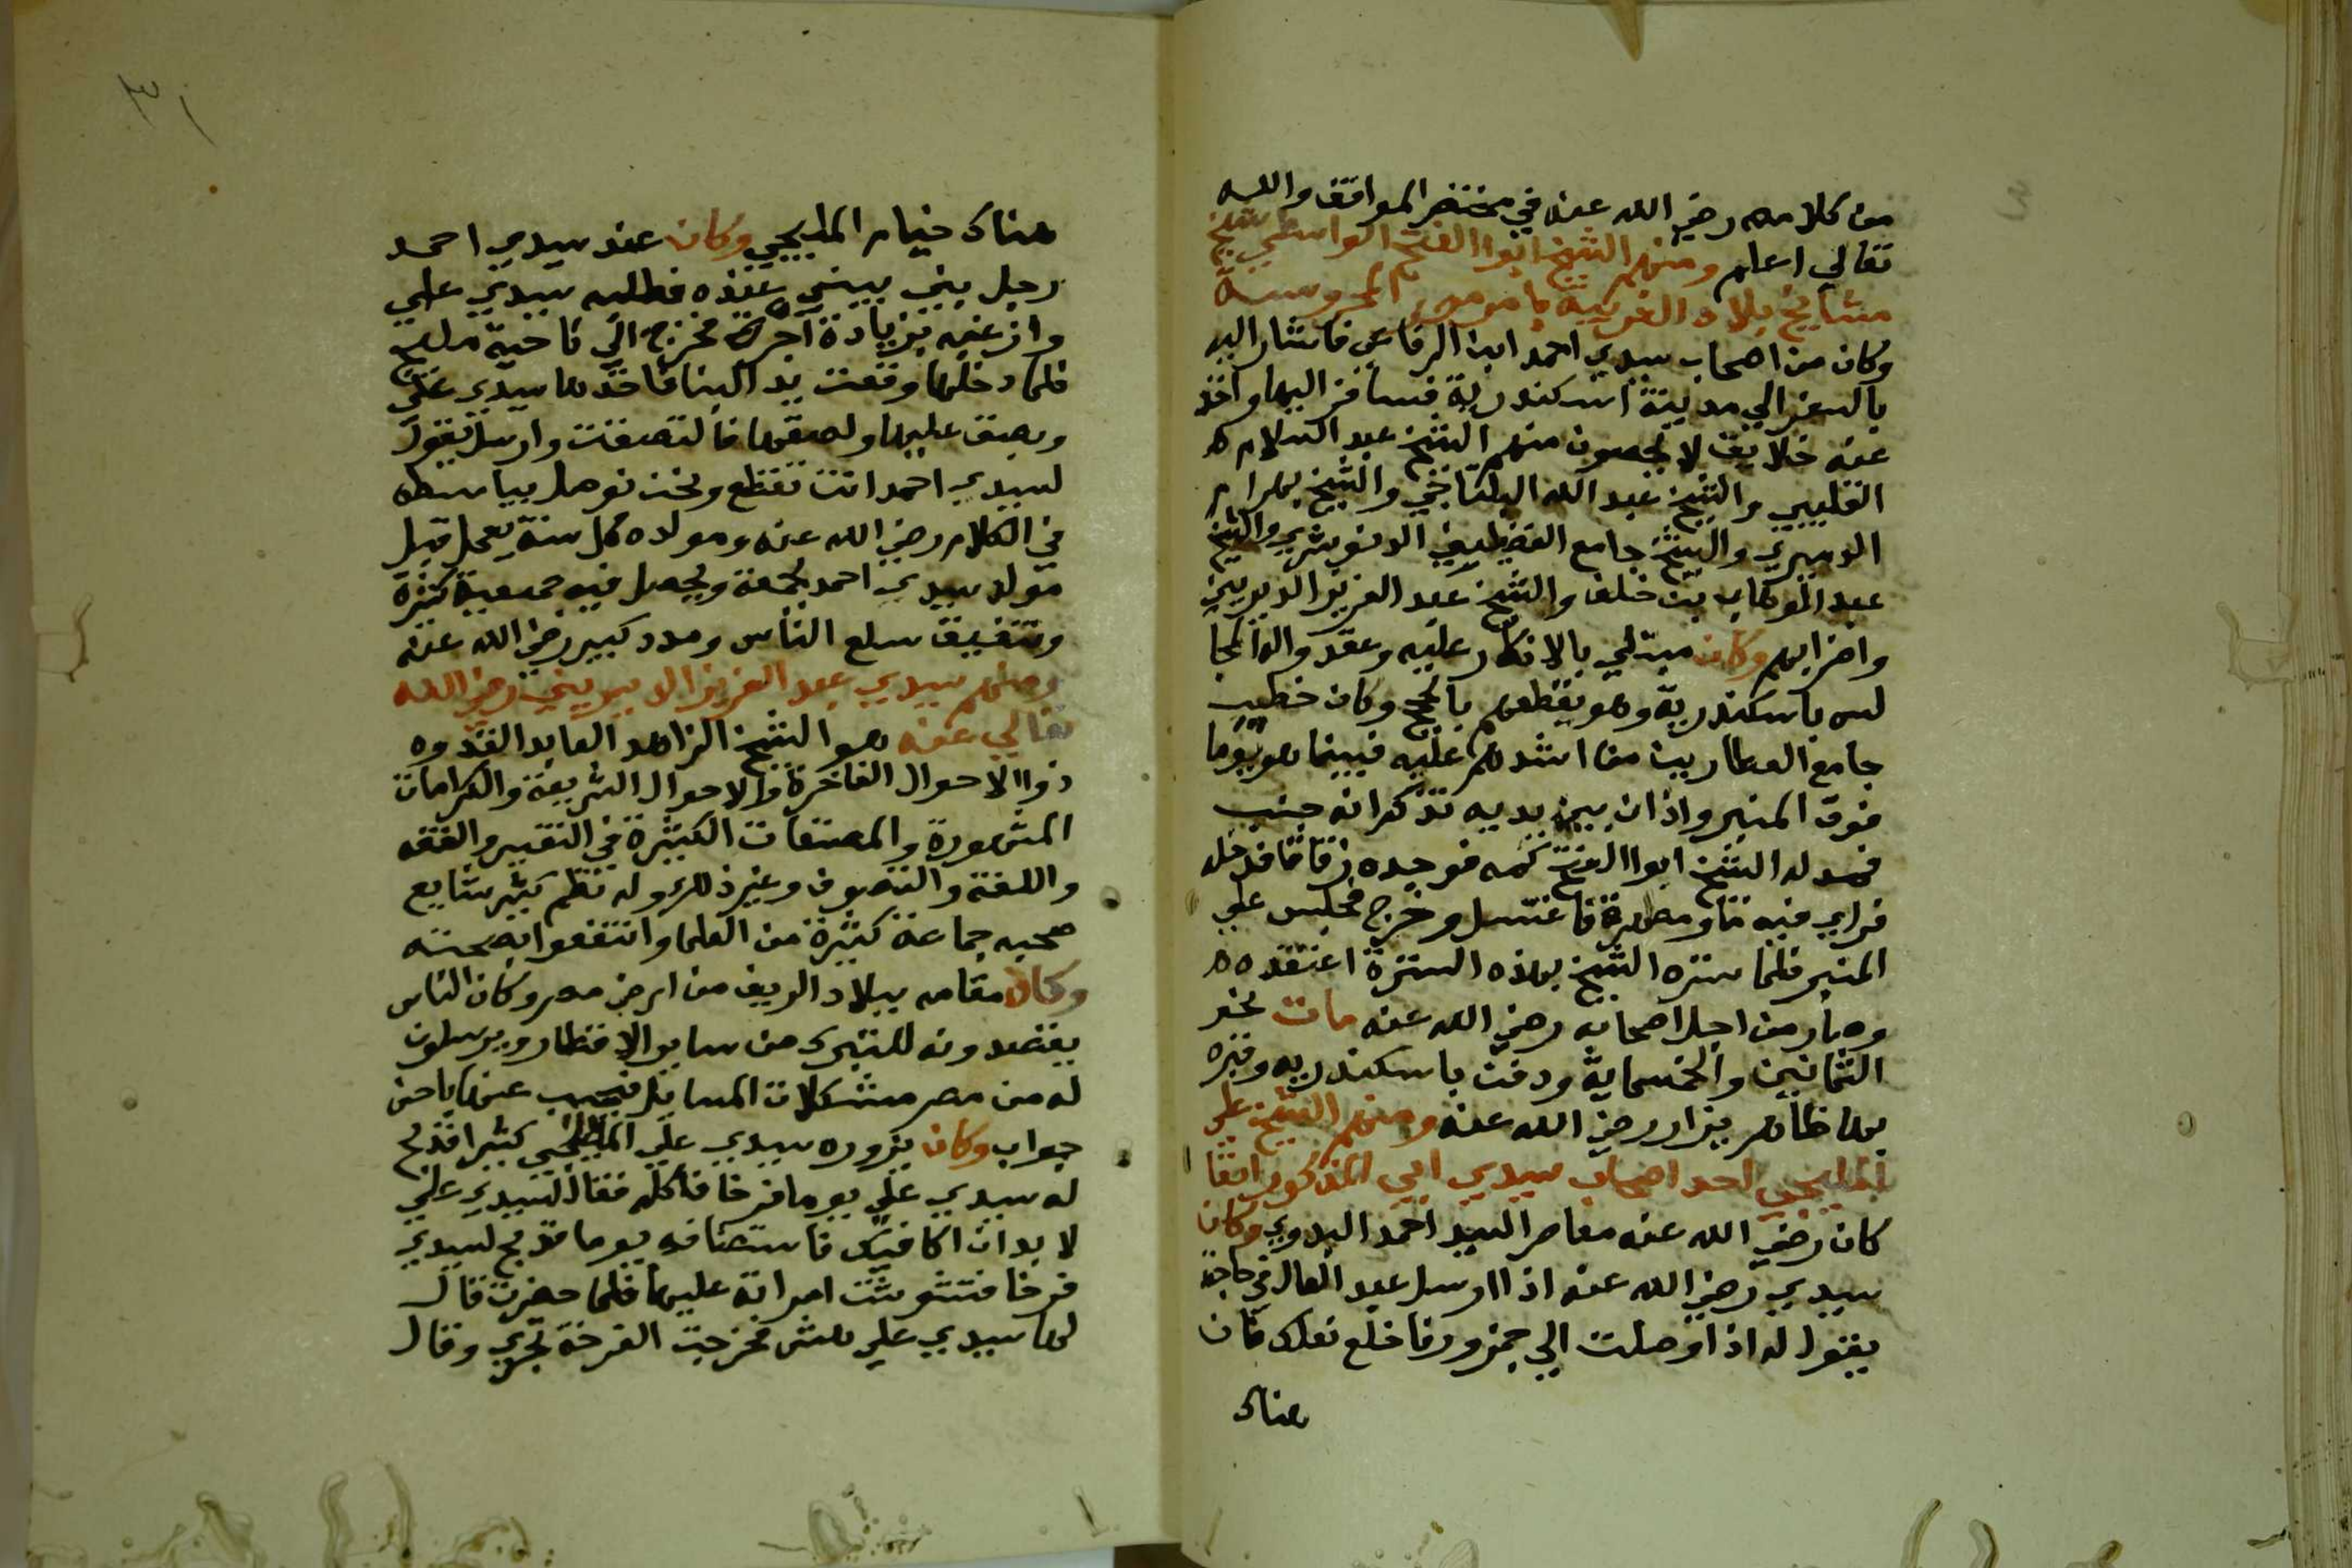 من كلامه رضي الله عنه في مختصر المواقف والله
تعالي اعلم ومنهم الشيخ ابوا الفتح الواسطي شيخ
مشايخ بلاد الغربية بامر مصر المحروسة
وكان من اصحاب سيدي احمد ابن الرفاعي فاشار اليه
بالسفر الي مدينة اسكندرية فسافر اليها واخذ
عنه خلايق لا يحصون منهم الشيخ عبد السلام
القليبي والشيخ عبد الله البلتاجي والشيخ بهرام
الدميري والشيخ جامع الفضيلين الدنوشري والشيخ
عبد الوهاب بن خلف والشيخ عبد العزيز الديريني
واضرابهم وكان مبتلي بالانكار عليه وعقدوا له المجا
لس باسكندرية وهو يقطعهم بالحجج وكان خطيب
جامع العطارين من اشدهم عليه فبينما هو يوما
فوق المنبر واذان بين يديه تذكر انه جنب
فمد له الشيخ ابوا الفتح كمه فوجده زقاقا فدخله
فراي فيه ماء ومطهرة فاغتسل وخرج فجلس علي
المنبر فلما ستره الشيخ بهذه السترة اعتقده
وصار من اجل اصحابه رضي الله عنه مات نحو
الثمانين والخمسماية ودفن باسكندرية وقبره
بها ظاهر يزار رضي الله عنه ومنهم الشيخ علي
المليجي احد اصحاب سيدي ابي المذكور انفا
كان رضي الله عنه معاصر السيد احمد البدوي وكان
سيدي رضي الله عنه اذا ارسل عبد العال في حاجة
يقول له اذا وصلت الي جمزور فاخلع نعلك فان
هناك
٣١
هناك خيام المليجي وكان عند سيدي احمد
رجل يبني بيتي عنده فطلبه سيدي علي
وارغبه بزيادة اجرة فخرج الي ناحية مليج
فلما دخلها وقعت يد البنا فاخذها سيدي علي
وبصق عليها ولصقها فالتصقت وارسل يقول
لسيدي احمد انت تقطع ونحن نوصل يباسطه
في الكلام رضي الله عنه ومولده كل سنة يعمل قبل
مولد سيدي احمد بجمعة ويحصل فيه جمعية كثيرة
وتنفيق سلع الناس ومدد كبير رضي الله عنه
ومنهم سيدي عبد العزيز الديريني رضي الله
تعالي عنه هو الشيخ الزاهد العابد القدوه
ذوا الاحوال الفاخرة والاحوال الشريفة والكرامات
المشهورة والمصنفات الكثيرة في التفسير والفقه
واللغة والتصوف وغير ذلك وله نظم كثير شايع
صحبه جماعة كثيرة من العلما وانتفعوا بصحبته
وكان مقامه ببلاد الريف من ارض مصر وكان الناس
يقصدونه للتبرك من ساير الاقطار ويرسلون
له من مصر مشكلات المسايل فيجيب عنها باحسن
جواب وكان يزوره سيدي علي المليجي كثيرا فذبح
له سيدي علي يوما فرخا فاكله فقال لسيدي علي
لا بد ان اكافيك فاستضافه يوما فذبح لسيدي
فرخا فتشوشت امراته عليها فلما حضرت قال
لها سيدي علي هش فخرجت الفرخة تجري وقال